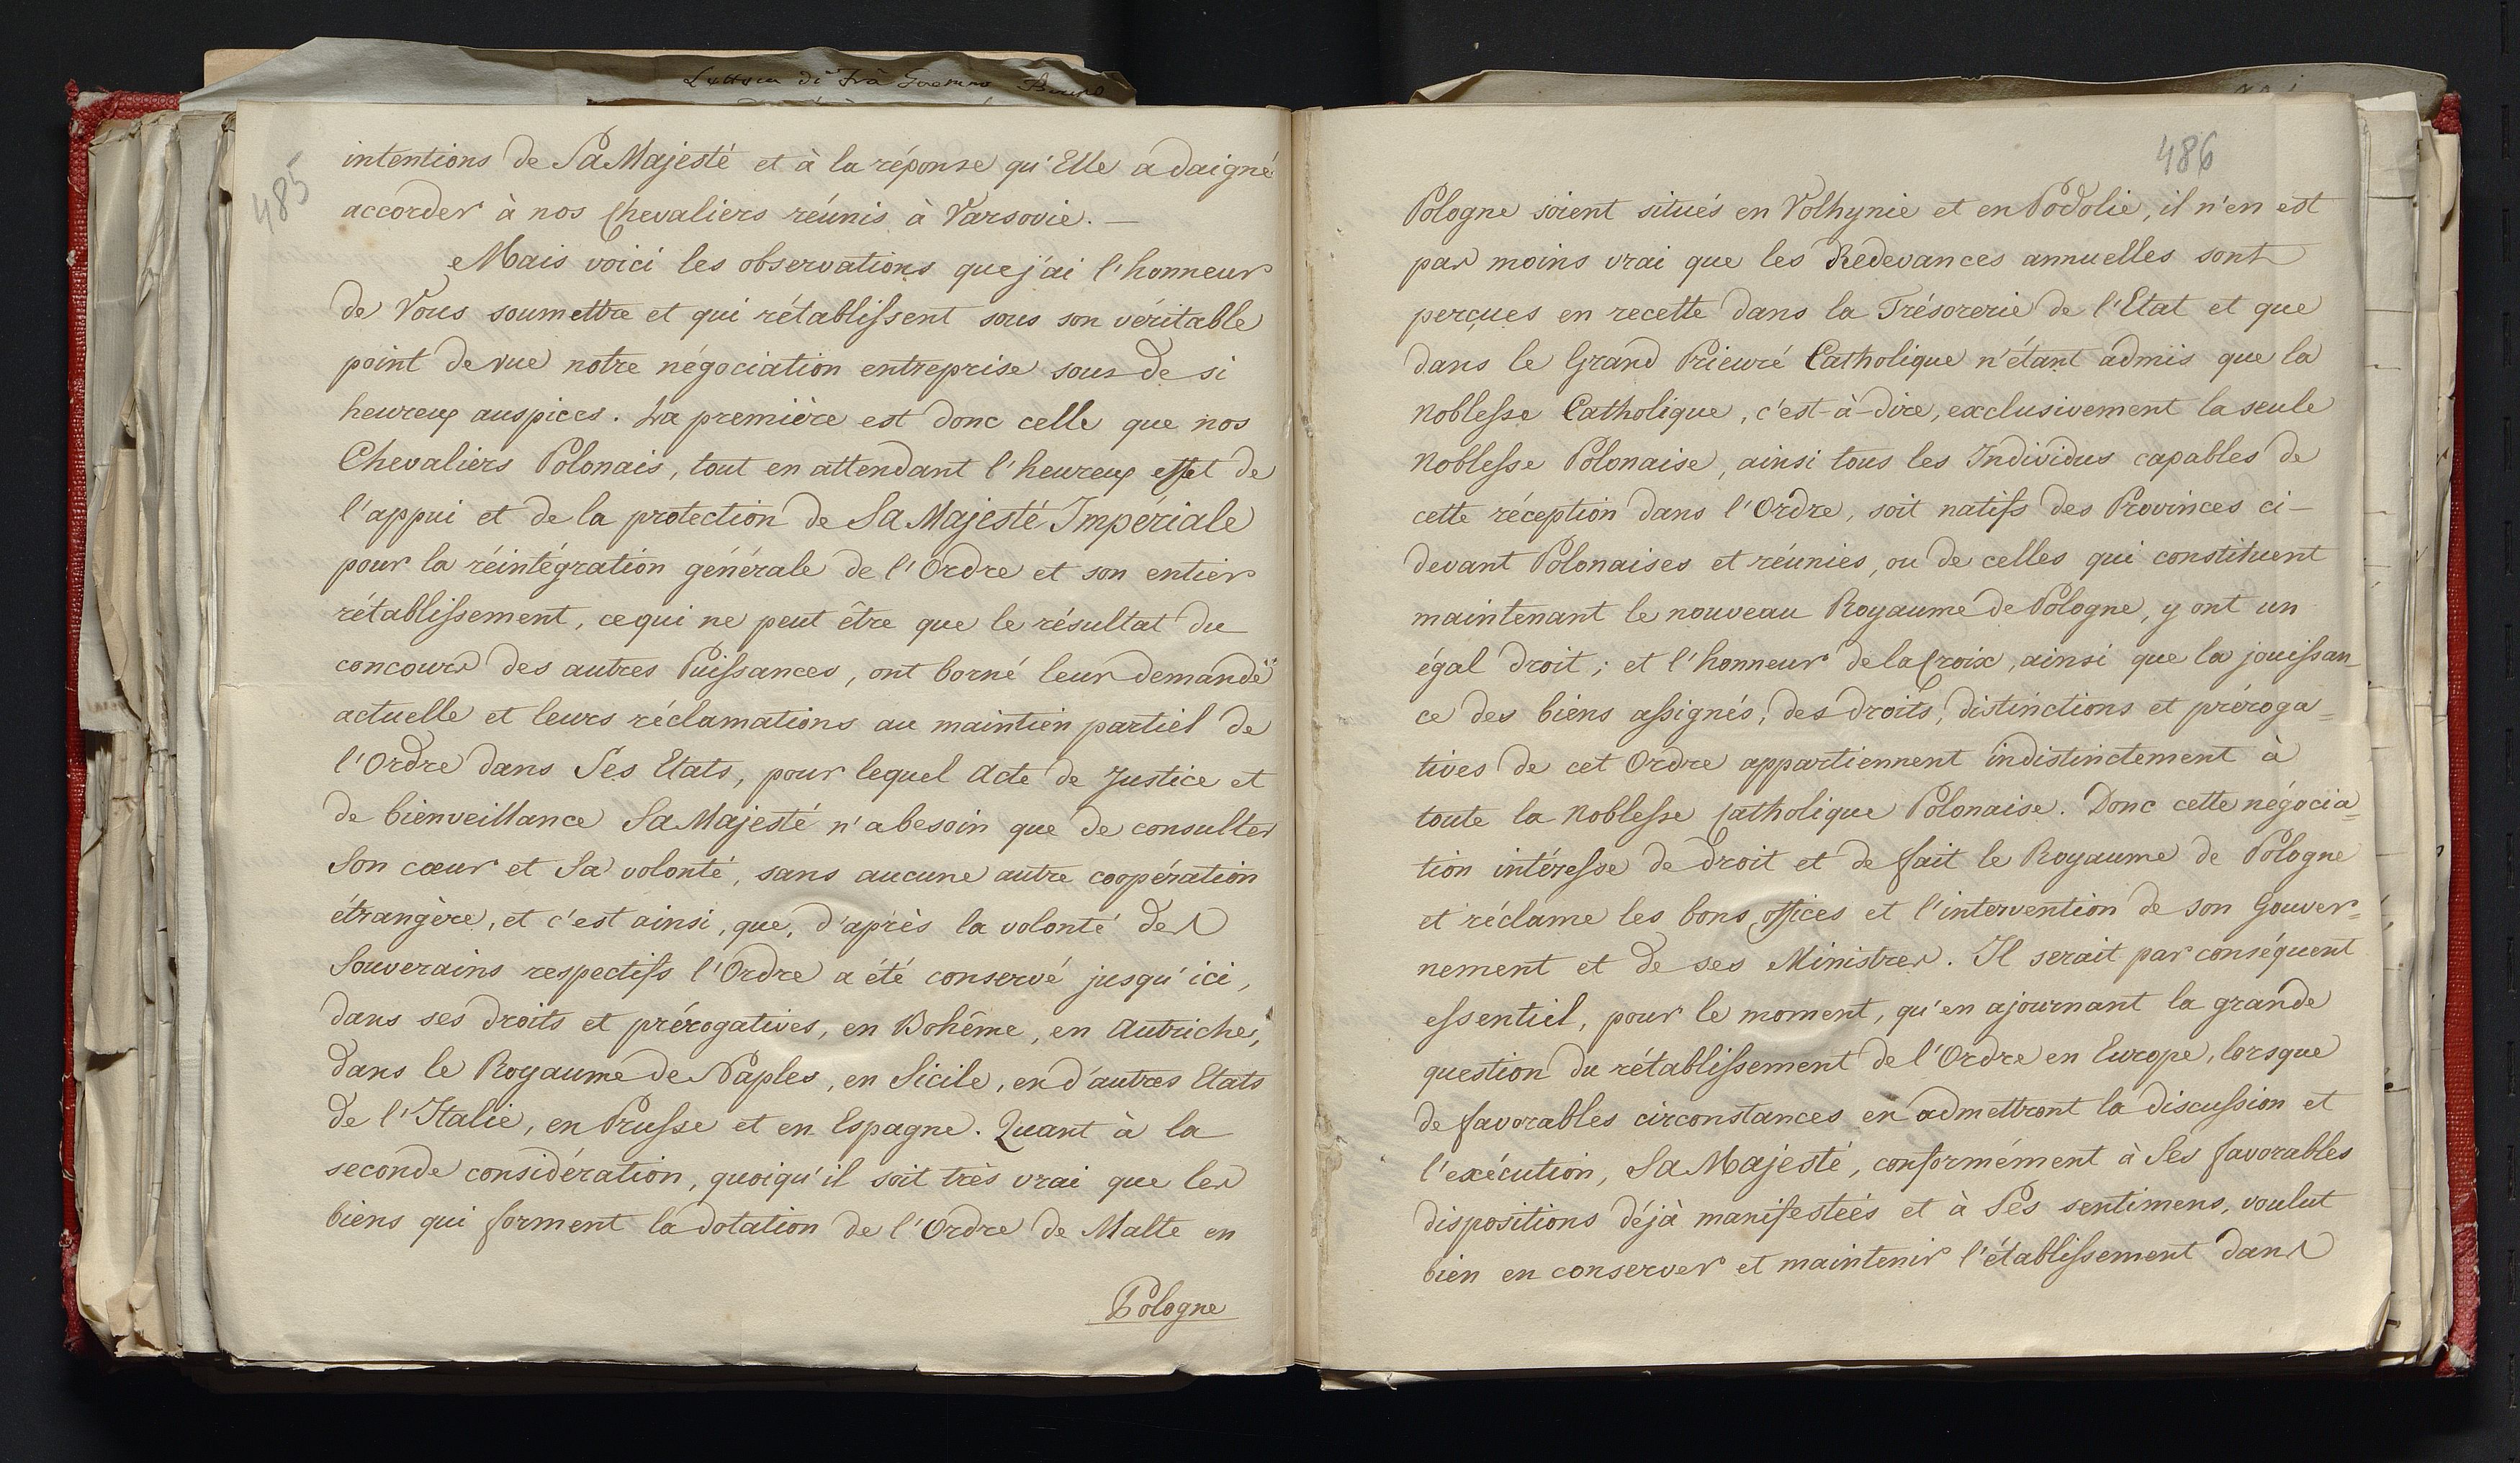 485
intentions de Sa Majesté et à la réponse qu'Elle a daigné
accorder à nos Chevaliers réunis à Varsovie. —
Mais voici les observations que j'ai l'honneur
de Vous soumettre et qui rétablissent sous son véritable
point de vue notre négociation entreprise sous de si
heureux auspices. La première est donc celle que nos
Chevaliers Polonais, tout en attendant l'heureux effet de
l'appui et de la protection de Sa Majesté Impériale
pour la réintégration générale de l'Ordre et son entier
rétablissement, ce qui ne peut être que le résultat du
concours des autres Puissances, ont borné leur demande
actuelle et leurs réclamations au maintien partiel de
l'Ordre dans Ses Etats, pour lequel Acte de Justice et
de bienveillance Sa Majesté n'a besoin que de consulter
Son cœur et Sa volonté, sans aucune autre coopération
étrangère, et c'est ainsi, que, d'après la volonté des
Souverains respectifs l'Ordre a été conservé jusqu'ici,
dans ses droits et prérogatives, en Bohême, en Autriche,
dans le Royaume de Naples, en Sicile, en d'autres Etats
de l'Italie, en Prusse et en Espagne. Quant à la
seconde considération, quoiqu'il soit très vrai que les
biens qui forment la dotation de l'Ordre de Malte en
Pologne
486
Pologne soient situés en Volhynie et en Podolie, il n'en est
pas moins vrai que les Redevances annuelles sont
perçues en recette dans la Trésorerie de l'Etat et que
dans le Grand Prieuré Catholique n'étant admis que la
Noblesse Catholique, c'est-à-dire, exclusivement la seule
Noblesse Polonaise, ainsi tous les Individus capables de
cette réception dans l'Ordre, soit natifs des Provinces ci-
devant Polonaises et réunies, ou de celles qui constituent
maintenant le nouveau Royaume de Pologne, y ont un
égal droit; et l'honneur de la Croix, ainsi que la jouissan-
ce des biens assignés, des droits, distinctions et préroga=
tives de cet Ordre appartiennent indistinctement à
toute la Noblesse Catholique Polonaise. Donc cette négocia=
tion intéresse de droit et de fait le Royaume de Pologne
et réclame les bons offices et l'intervention de son Gouver=
nement et de ses Ministres. Il serait par conséquent
essentiel, pour le moment, qu'en ajournant la grande
question du rétablissement de l'Ordre en Europe, lorsque
de favorables circonstances en admettront la discussion et
l'exécution, Sa Majesté, conformément à Ses favorables
dispositions déjà manifestées et à Ses sentimens, voulut
bien en conserver et maintenir l'établissement dans